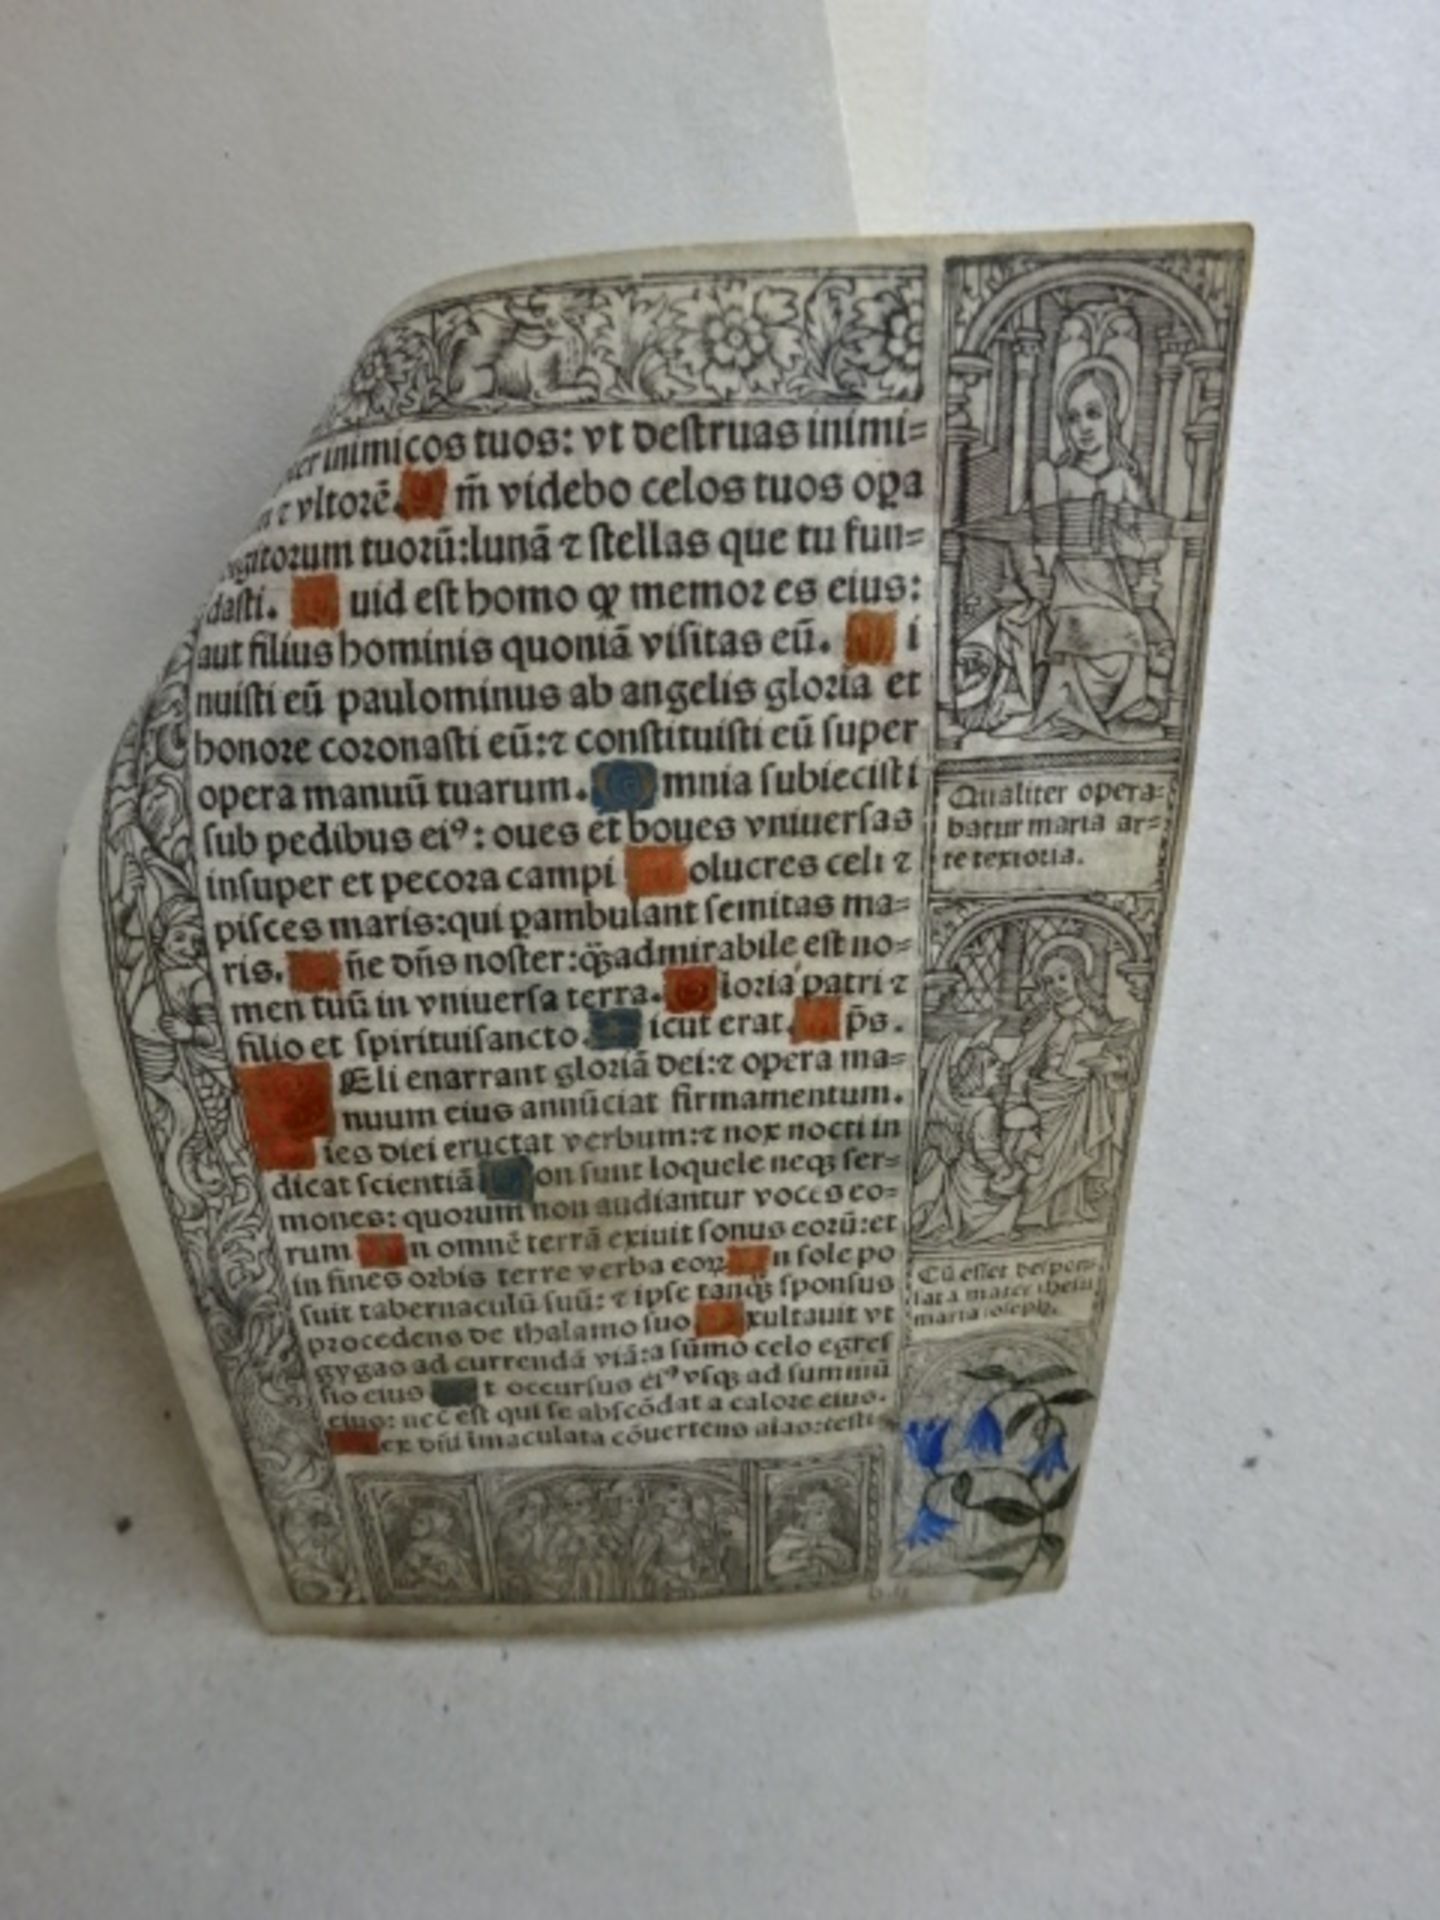 inimicos tuos: vt destruas inimi=
⁊ vltorē. m̄ videbo celos tuos oꝑa
digitorum tuorū:lunā ⁊ stellas que tu fun=
dasti. uid est homo ꝙ memor es eius:
aut filius hominis quoniā visitas eū. i
nuisti eū paulominus ab angelis gloria et
honore coronasti eū:⁊ constituisti eū super
opera manuū tuarum. mnia subiecisti
sub pedibus eiꝰ: oues et boues vniuersas
insuper et pecora campi olucres celi ⁊
pisces maris:qui ꝑambulant semitas ma=
ris. ñe dñs noster:q̄ꝫadmirabile est no=
men tuū in vniuersa terra. loria patri ⁊
filio et spirituisancto. icut erat. p̄s.
Eli enarrant gloriā dei:⁊ opera ma=
nuum eius annūciat firmamentum.
ies diei eructat verbum:⁊ nox nocti in
dicat scientiā on sunt loquele neqꝫ ser=
mones: quorum non audiantur voces eo=
rum n omnē terrā exiuit sonus eorū:et
in fines orbis terre verba eoꝝ n sole po
suit tabernaculū suū: ⁊ ipse tanqꝫ sponsus
procedens de thalamo suo xultauit vt
gygas ad currendā viā:a sūmo celo egres
sio eius t occursus eiꝰ vsqꝫ ad summū
eius: nec est qui se abscōdat a calore eius.
ex dñi īmaculata cōuertens aīas:testi
Qualiter opera=
batur maria ar=
te textoria.
Cū esset despon=
sata mater ihesu
maria ioseph.